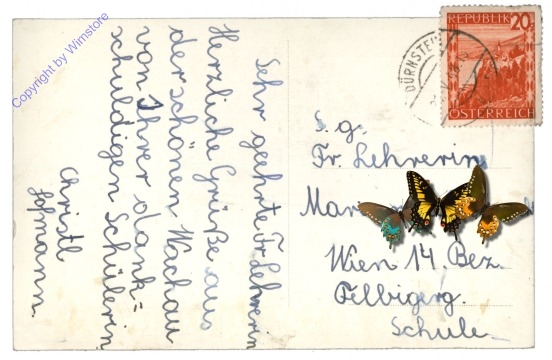 Sehr geehrte Fr. Lehrerin
Herzliche Grüße aus
der schönen Wachau
von Ihrer dank=
schuldigen Schülerin
Christl
Hofmann.
S. g.
Fr. Lehrerin
Mar
Wien 14. Bez.
Felbigerg.
Schule
REPUBLIK 20
ÖSTERREICH
DÜRNSTEIN
Copyright by Wimstore